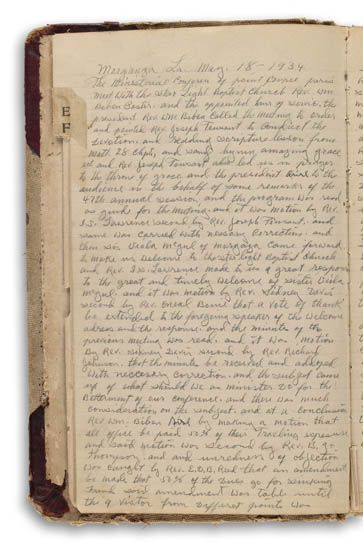 Morganza La. May. 18 - 1934
The Ministerial Conference of point Coupee paris
meet with the Star Light Baptist Church Rev. Wm
Biben Paster. and the appointed hour of service. the
president Rev. Wm. Biben Called the meeting to order
and pointed Rev. Joseph Tennart to Conduct the
Devotion. and Reading Scripture lesson from
Matt. 25. Chpt, and song hymn amazing grace
and Rev Joseph Tennart also led us in prayer
to the throne of grace and the president to the
audience in the behalf of some remarks of the
47th annual session, and the program was read
as guide for the meeting. and it was motion by Rev.
I.S. Lawrence second by Rev. Joseph Tennart. and
same was Carried with necessary Correction. and
then Sis Viola McGul of morganza Came forward
to make us welcome to the Star light Baptist Church
and Rev. I.S. Lawrence made to us a great response
to the great and timely welcome of sister Viola
McGul. and it was motion by Rev. Sidney Davis
second by Rev. Oneal that a vote of thank
be extended to the forgoing speaker of the welcome
adress and the response. and the minute of the
previous meeting was read. and it was motion
By Rev. Sidney Davis second by Rev. Richard
Johnson. that the minute be received and adopted
with necessary Correction. and the subject came
up of what should we as ministers do for the
Betterment of our Conference. and there was much
Consideration on the subject. and at a Conclusion
Rev Wm. Biben by making a motion that
all offices be paid 50% of their Traveling expense
and said motion was second by Rev. B.
Thompson, and and unreadiness of objection
was Caught by Rev. E.D.B. Reed that an amendment
be made that 50% of the Dues go for
said amendment was table until
the 9 Visitor from Different points was
E
F